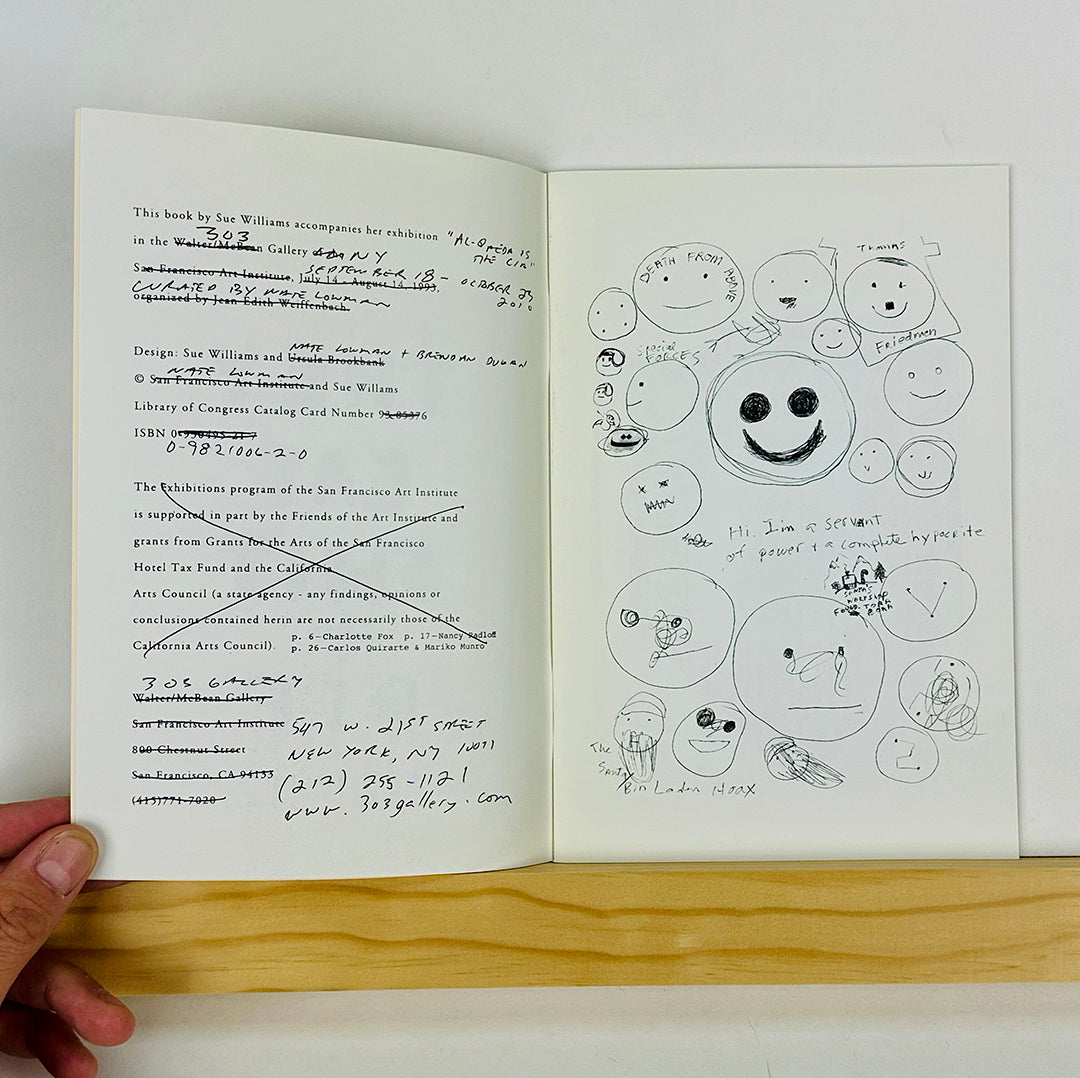 This book by Sue Williams accompanies her exhibition "AL-QAEDA IS
THE CIA"
303
in the Walter/McBean Gallery NY
SEPTEMBER 18 - OCTOBER 23
2010
San Francisco Art Institute, July 14 - August 14, 1993,
CURATED BY NATE LOWMAN
organized by Jean Edith Weiffenbach.
NATE LOWMAN + BRENDAN DUGAN
Design: Sue Williams and Ursula Brookbank
NATE LOWMAN
© San Francisco Art Institute and Sue Willams
Library of Congress Catalog Card Number 93-85376
ISBN 0-930495-21-7
0-9821006-2-0
The Exhibitions program of the San Francisco Art Institute
is supported in part by the Friends of the Art Institute and
grants from Grants for the Arts of the San Francisco
Hotel Tax Fund and the California
Arts Council (a state agency - any findings, opinions or
conclusions contained herin are not necessarily those of the
California Arts Council).
p. 6—Charlotte Fox p. 17—Nancy Radloff
p. 26—Carlos Quirarte & Mariko Munro
303 GALLERY
Walter/McBean Gallery
San Francisco Art Institute
547 W. 21ST STREET
800 Chestnut Street
NEW YORK, NY 10011
San Francisco, CA 94133
(212) 255-1121
(415)771-7020
www.303gallery.com
Thomas
DEATH FROM ABOVE
Friedmen
Special
FORCES
Hi. I'm a servant
of power + a complete hypocrite
SANTA'S
WORKSHOP
FOUND
The
Santa/
Bin Laden Hoax